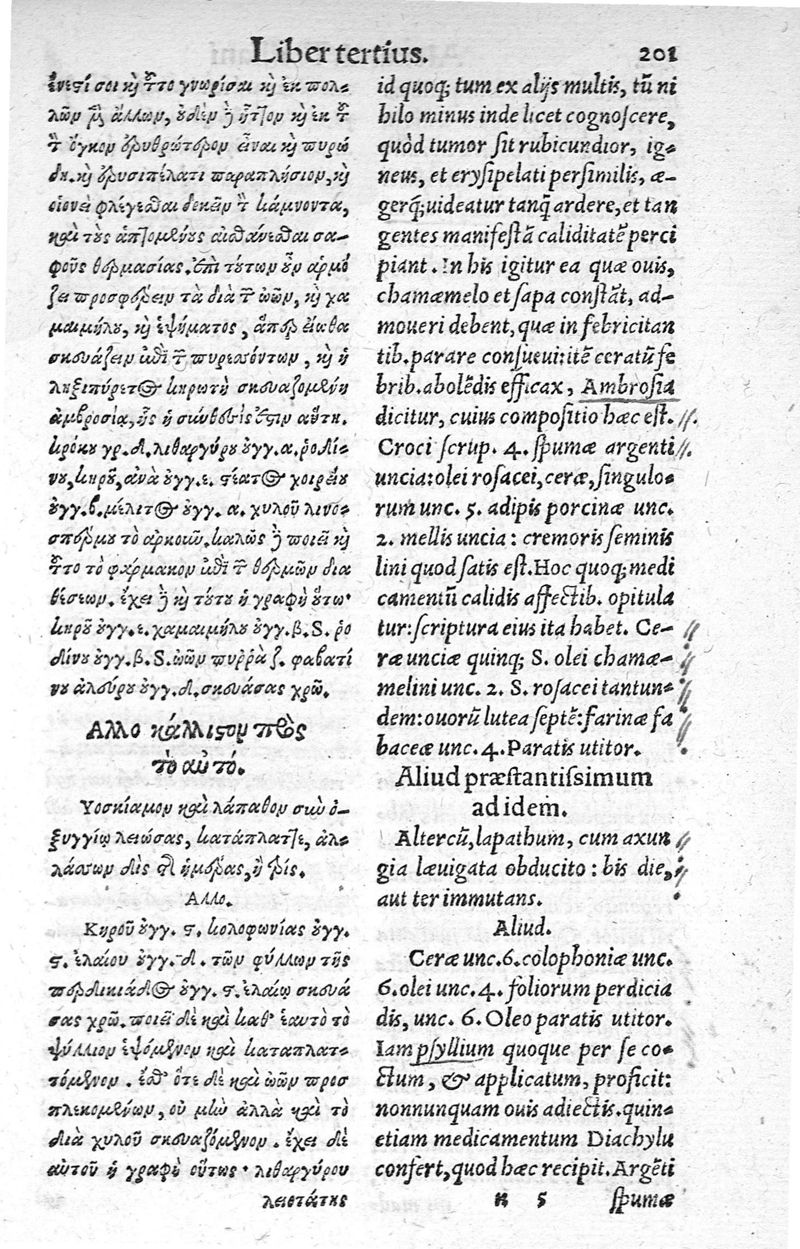 Liber tertius. 201
ἔνεστί σοι καὶ τοῦτο γνωρίσαι καὶ ἐκ πολ-
λῶν μὲν ἄλλων, οὐδὲν δὲ ἧττον καὶ ἐκ τοῦ
τὸν ὄγκον ἐρυθρότερον εἶναι καὶ πυρώ
δη. καὶ ἐρυσιπέλατι παραπλήσιον, καὶ
οἱονεὶ φλέγεσθαι δοκεῖν τὸν κάμνοντα,
καὶ τοὺς ἁπτομένους αἰσθάνεσθαι σα-
φοῦς θερμασίας. ἐπὶ τούτων οὖν ἁρμό
ζει προσφέρειν τὰ διὰ τῶν ὠῶν, καὶ χα
μαιμήλου, καὶ ἑψήματος, ἅπερ εἴωθα
σκευάζειν ἐπὶ τῶν πυρεσσόντων, καὶ ἡ
ληξιπύρετος κηρωτὴ σκευαζομένη
ἀμβροσία, ἧς ἡ σύνθεσίς ἐστιν αὕτη.
κρόκου γρ. δ. λιθαργύρου ουγγ. α. ῥοδί-
νου, κηροῦ, ἀνὰ ουγγ. ε. στέατος χοιρείου
ουγγ. β. μέλιτος ουγγ. α. χυλοῦ λινο-
σπέρμου τὸ ἀρκοῦν. καλῶς δὲ ποιεῖ καὶ
τοῦτο τὸ φάρμακον ἐπὶ τῶν θερμῶν δια
θέσεων. ἔχει δὲ καὶ τούτου ἡ γραφὴ οὕτω·
κηροῦ ουγγ. ε. χαμαιμήλου ουγγ. β. S. ῥο
δίνου ουγγ. β. S. ὠῶν πυρρὰ ζ. φαβατί
νου ἀλεύρου ουγγ. δ. σκευάσας χρῶ.
Αλλο κάλλιστον πρὸς
τὸ αὐτό.
Υοσκίαμον καὶ λάπαθον σὺν ὀ-
ξυγγίῳ λειώσας, κατάπλαττε, ἀλ-
λάσσων δὶς τῆς ἡμέρας, ἢ τρίς.
Αλλο.
Κηροῦ ουγγ. ϛ. κολοφωνίας ουγγ.
ϛ. ἐλαίου ουγγ. δ. τῶν φύλλων τῆς
περδικιάδος ουγγ. ϛ. ἐλαίῳ σκευά
σας χρῶ. ποιεῖ δὲ καὶ καθ' ἑαυτὸ τὸ
ψύλλιον ἑψόμενον καὶ καταπλατ-
τόμενον. ἔσθ' ὅτε δὲ καὶ ὠῶν προσ
πλεκομένων, οὐ μὴν ἀλλὰ καὶ τὸ
διὰ χυλοῦ σκευαζόμενον. ἔχει δὲ
αὐτοῦ ἡ γραφὴ οὕτως· λιθαργύρου
λειοτάτης
id quoq; tum ex alijs multis, tũ ni
hilo minus inde licet cognoscere,
quòd tumor sit rubicundior, ig-
neus, et erysipelati persimilis, æ-
gerq́;uideatur tanq̃ ardere, et tan
gentes manifestã caliditatẽ perci
piant. In his igitur ea quæ ouis,
chamæmelo et sapa constãt, ad-
moueri debent, quæ in febricitan
tib. parare consueui: itẽ ceratũ fe
brib. abolẽdis efficax, Ambrosia
dicitur, cuius compositio hæc est.
Croci scrup. 4. spumæ argenti
uncia: olei rosacei, ceræ, singulo-
rum unc. 5. adipis porcinæ unc.
2. mellis uncia: cremoris seminis
lini quod satis est. Hoc quoq; medi
camentũ calidis affectib. opitula
tur: scriptura eius ita habet. Ce-
ræ unciæ quinq; S. olei chamæ-
melini unc. 2. S. rosacei tantun-
dem: ouorũ lutea septẽ: farinæ fa
baceæ unc. 4. Paratis utitor.
Aliud præstantissimum
ad idem.
Altercũ, lapathum, cum axun
gia læuigata obducito: bis die,
aut ter immutans.
Aliud.
Ceræ unc. 6. colophoniæ unc.
6. olei unc. 4. foliorum perdicia
dis, unc. 6. Oleo paratis utitor.
Iam psyllium quoque per se co-
ctum, & applicatum, proficit:
nonnunquam ouis adiectis. quin-
etiam medicamentum Diachylu
confert, quod hæc recipit. Argẽti
n 5 spumæ